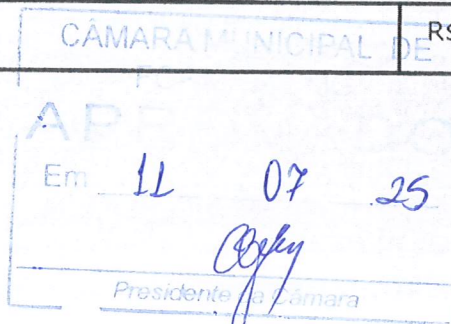 R$
CÂMARA MUNICIPAL DE
Em 11 07 25
Presidente da Câmara